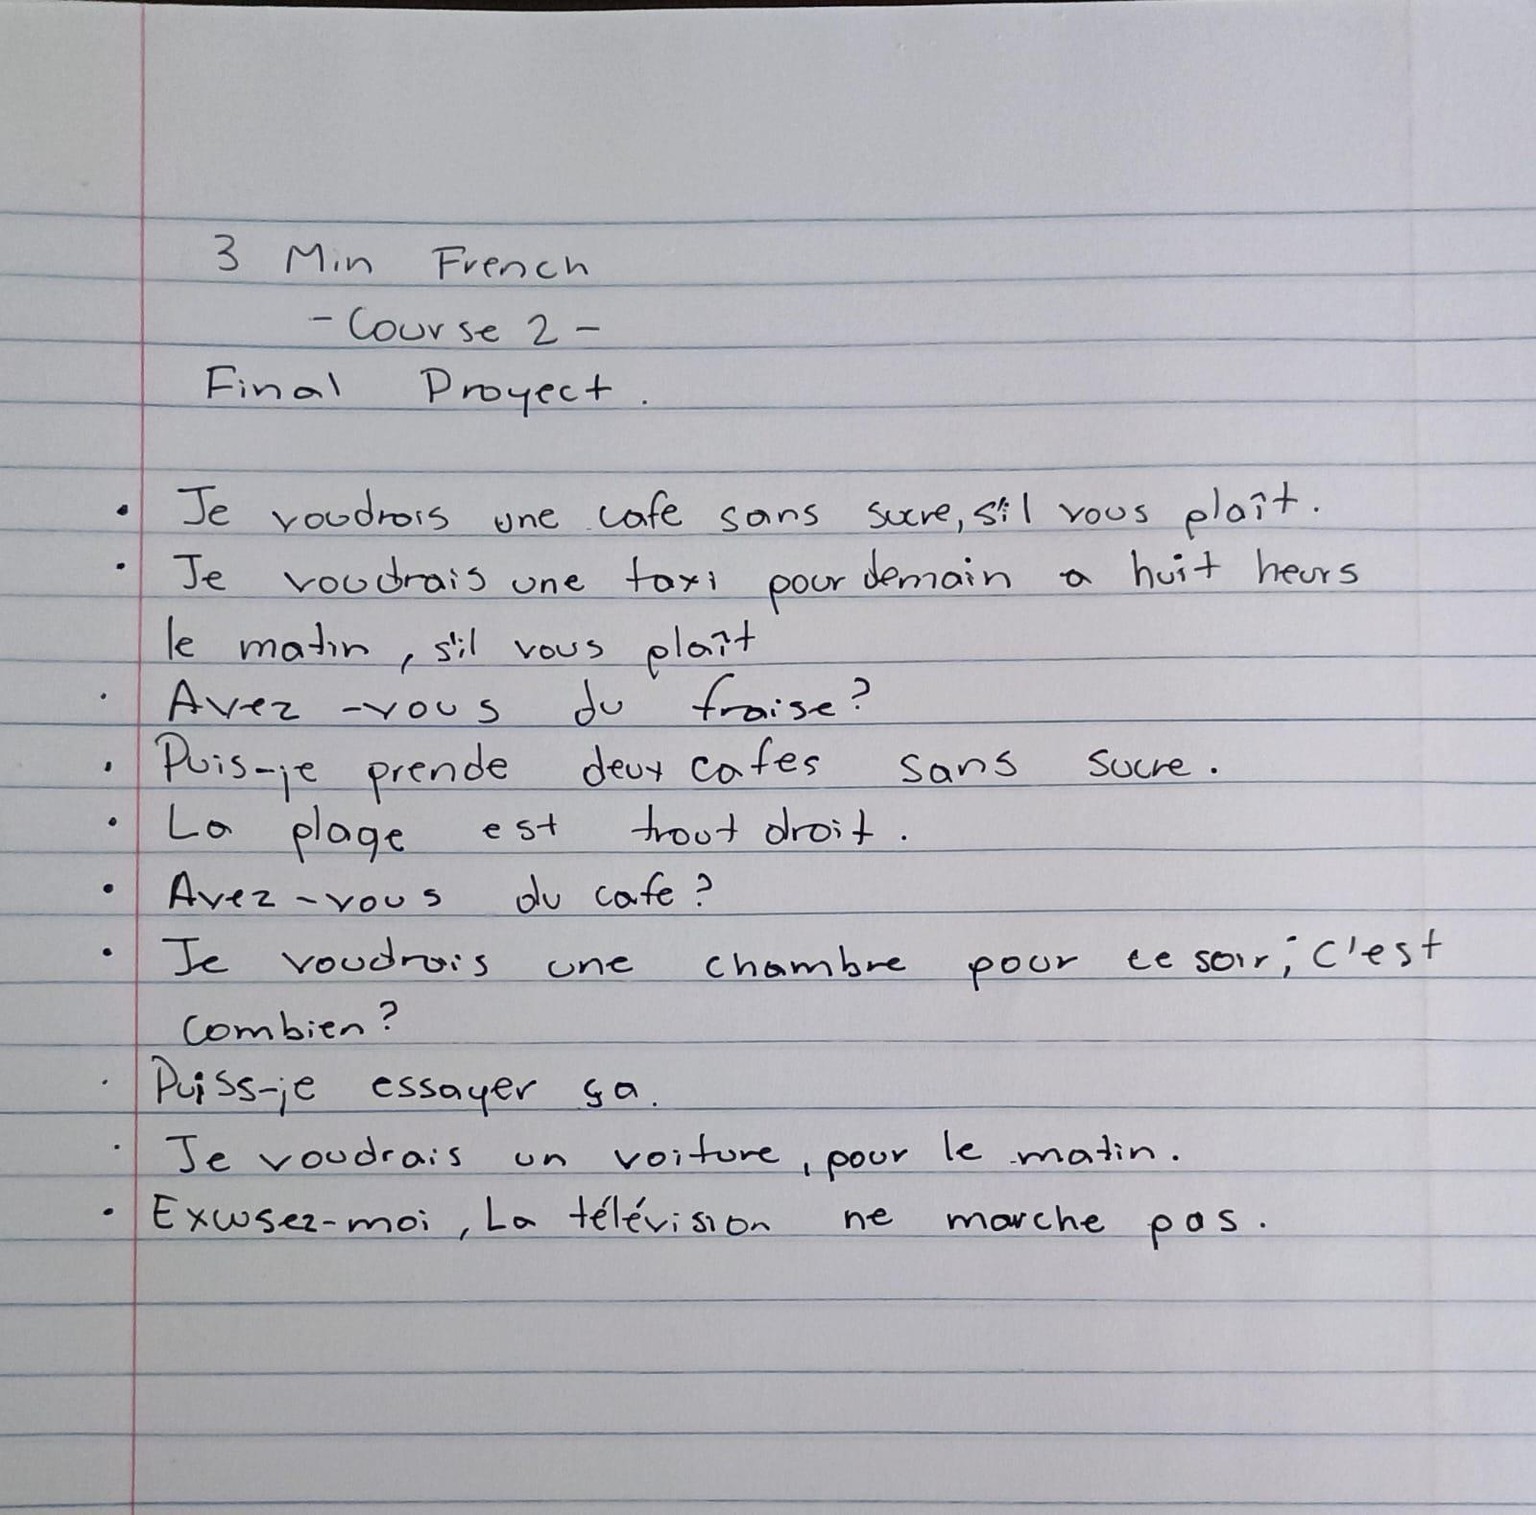 3 Min French
- Course 2 -
Final Proyect.
• Je voudrois une cafe sans sucre, s'il vous plaît.
• Je voudrais une taxi pour demain a huit heurs
le matin, s'il vous plaît
• Avez-vous du fraise?
• Puis-je prende deux cafes sans sucre.
• La plage est trout droit.
• Avez-vous du cafe?
• Je voudrais une chambre pour ce soir; c'est
combien?
• Puiss-je essayer ça.
• Je voudrais un voiture, pour le matin.
• Excusez-moi, La télévision ne marche pas.